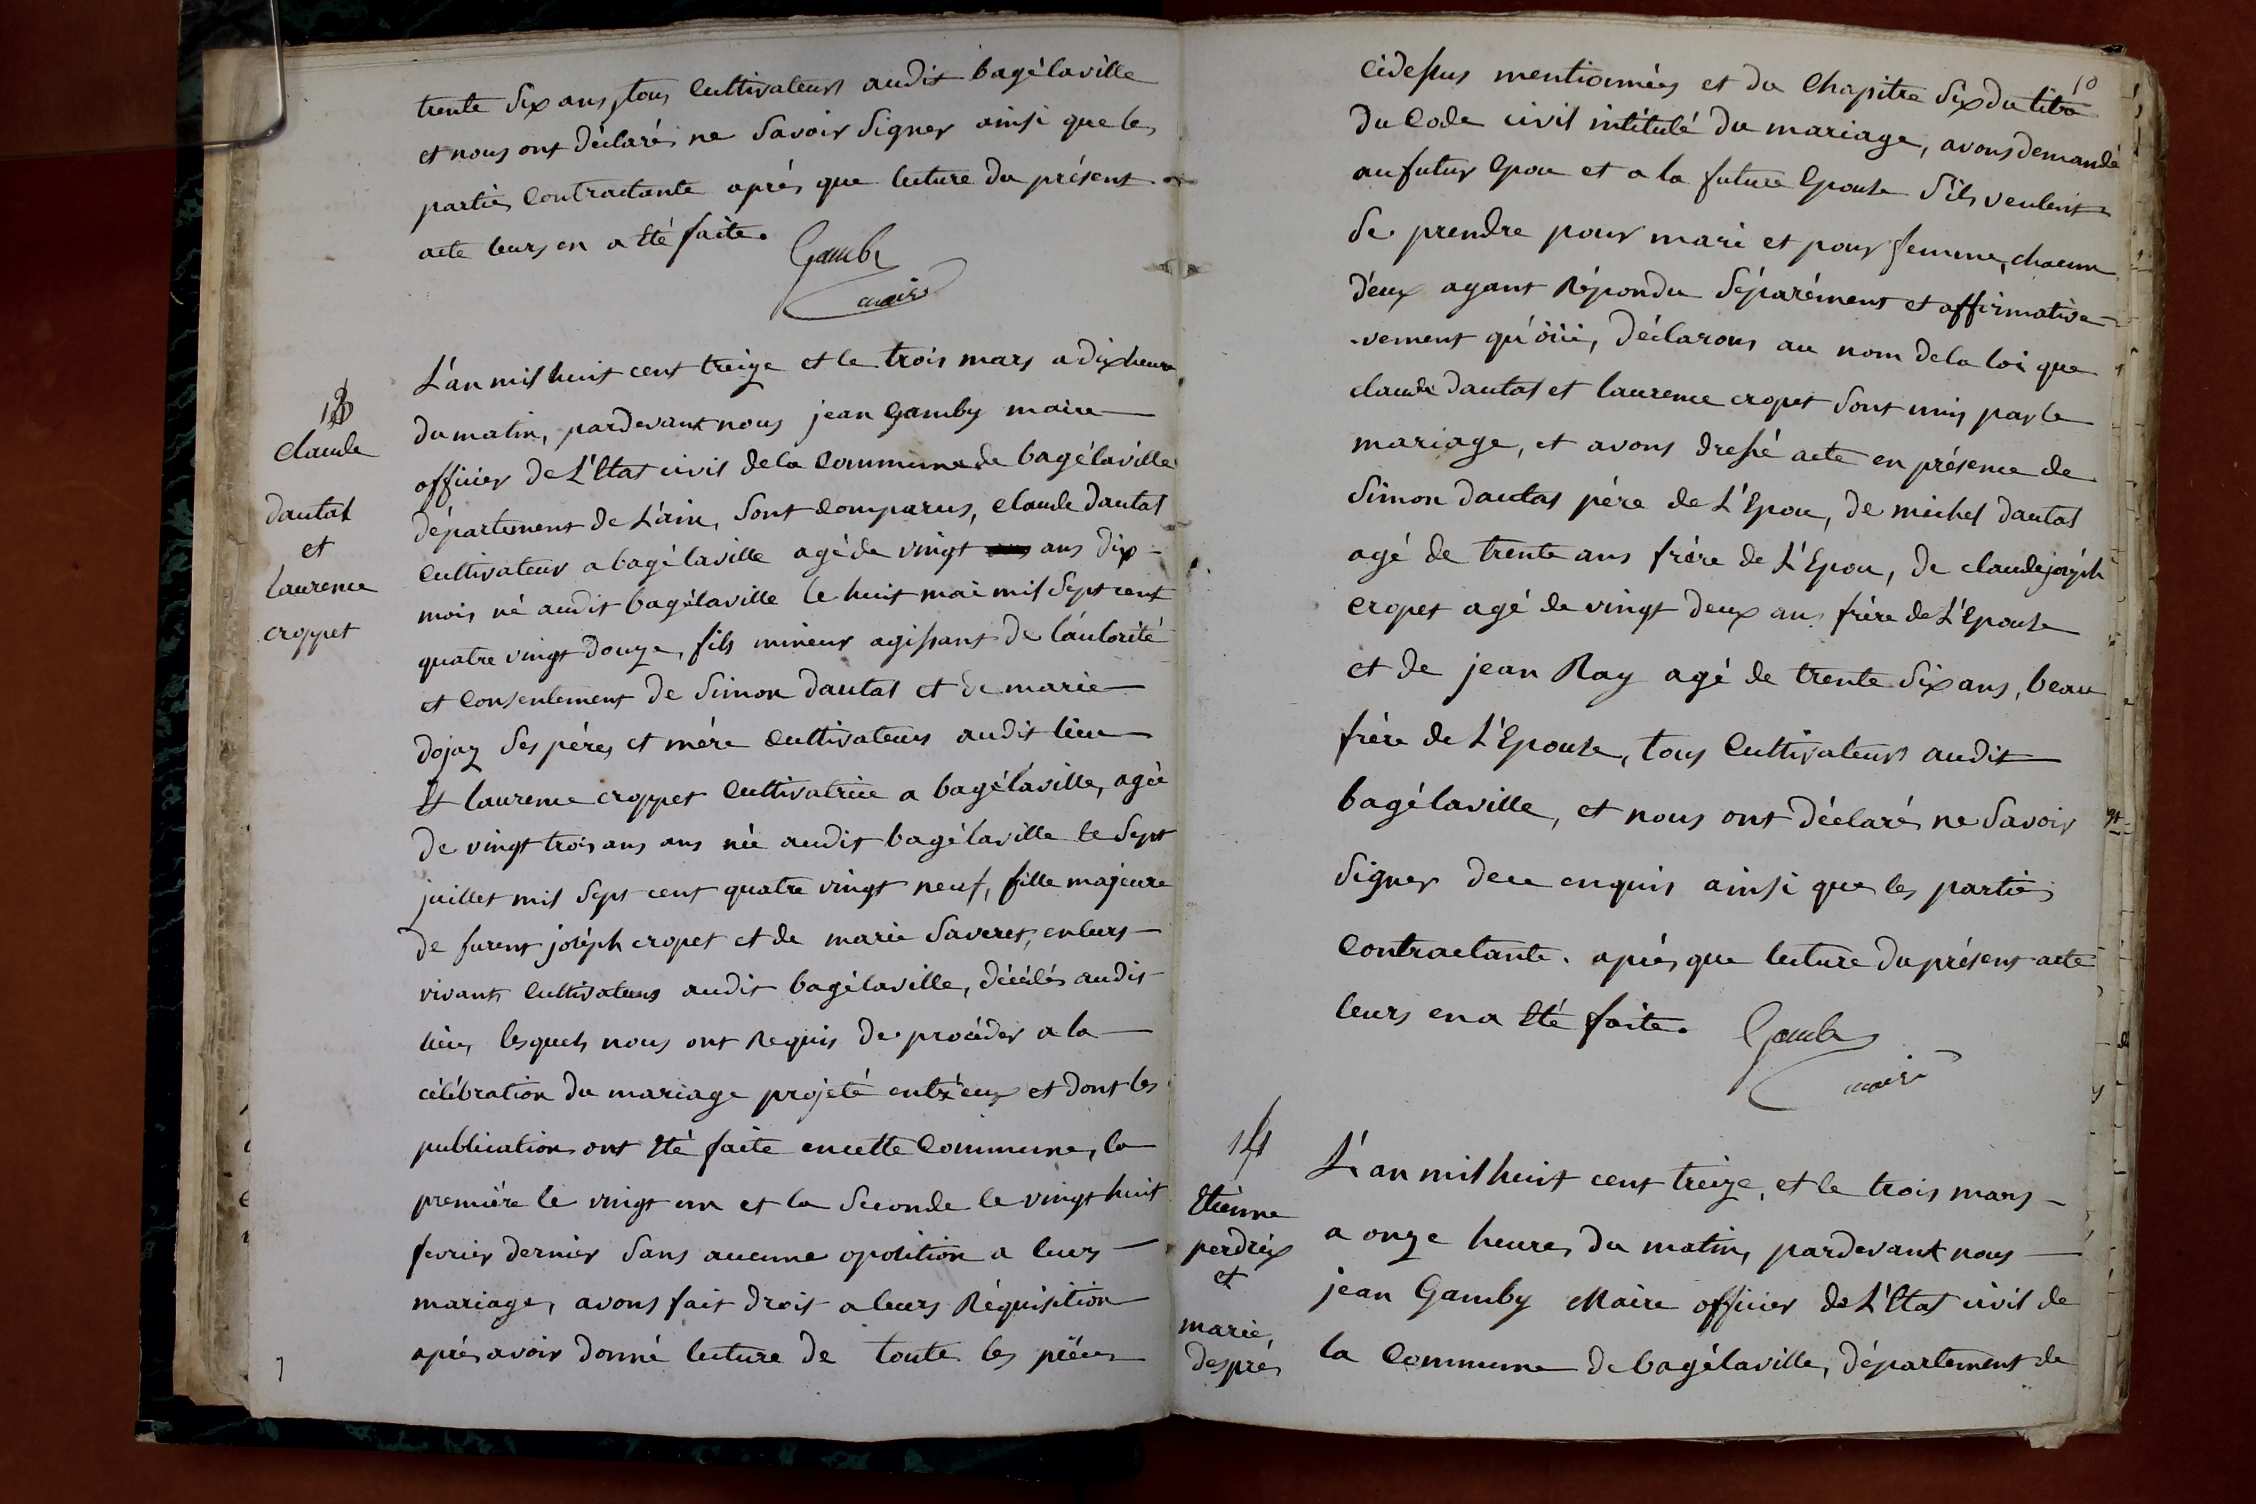 trente six ans, tous cultivateurs audit bagélaville
et nous ont déclarés ne savoir signer ainsi que les
parties contractante après que lecture du présent
acte leurs en a été faite.
Gamby
maire
13
claude
dautal
et
laurence
croppet
L'an mil huit cent treize et le trois mars a dix heure
du matin, pardevant nous jean Gamby maire
officier de L'Etat civil de la commune de bagélaville
département de L'ain, sont comparus, claude dautal
cultivateur a bagélaville agé de vingt ans dix
mois né audit bagélaville le huit mai mil sept cent
quatre vingt douze, fils mineur agissant de l'autorité
et consentement de simon dautal et de marie
dojaz ses pères et mère cultivateurs audit lieu
Et laurence croppet cultivatrice a bagélaville, agée
de vingt trois ans ans née audit bagélaville le sept
juillet mil sept cent quatre vingt neuf, fille majeure
de furent joseph cropet et de marie saveret, en leurs
vivants cultivateurs audit bagélaville, décédés audit
lieu, lesquels nous ont requis de procéder a la
célébration du mariage projeté entr'eux et dont les
publication ont été faite en cette commune, la
première le vingt un et la seconde le vingt huit
fevrier dernier sans aucune oposition a leurs
mariage, avons fait droit a leurs Réquisition
après avoir donné lecture de toute les pièces
10
cidessus mentionnées et du chapitre six du titre
du code civil intitulé du mariage, avons demandé
au futur Epou et a la future Epouse s'ils veulent
se prendre pour mari et pour femme, chacun
d'eux ayant Répondu séparément et affirmative
-vement qu'oüi, déclarons au nom de la loi que
claude dautal et laurence cropet sont unis par le
mariage, et avons dressé acte en présence de
simon dautal père de L'Epou, de michel dautal
agé de trente ans frère de L'Epou, de claude joseph
cropet agé de vingt deux ans frère de L'Epouse
et de jean Ray agé de trente six ans, beau
frère de L'Epouse, tous cultivateurs audit
bagélaville, et nous ont déclarés ne savoir
signer de ce enquis ainsi que les parties
contractante. après que lecture du présent acte
leurs en a été faite.
Gamby
maire
14
Etienne
perdrix
et
marie
després
L'an mil huit cent treize, et le trois mars
a onze heures du matin, pardevant nous
jean Gamby Maire officier de L'Etat civil de
la commune de bagélaville, département de